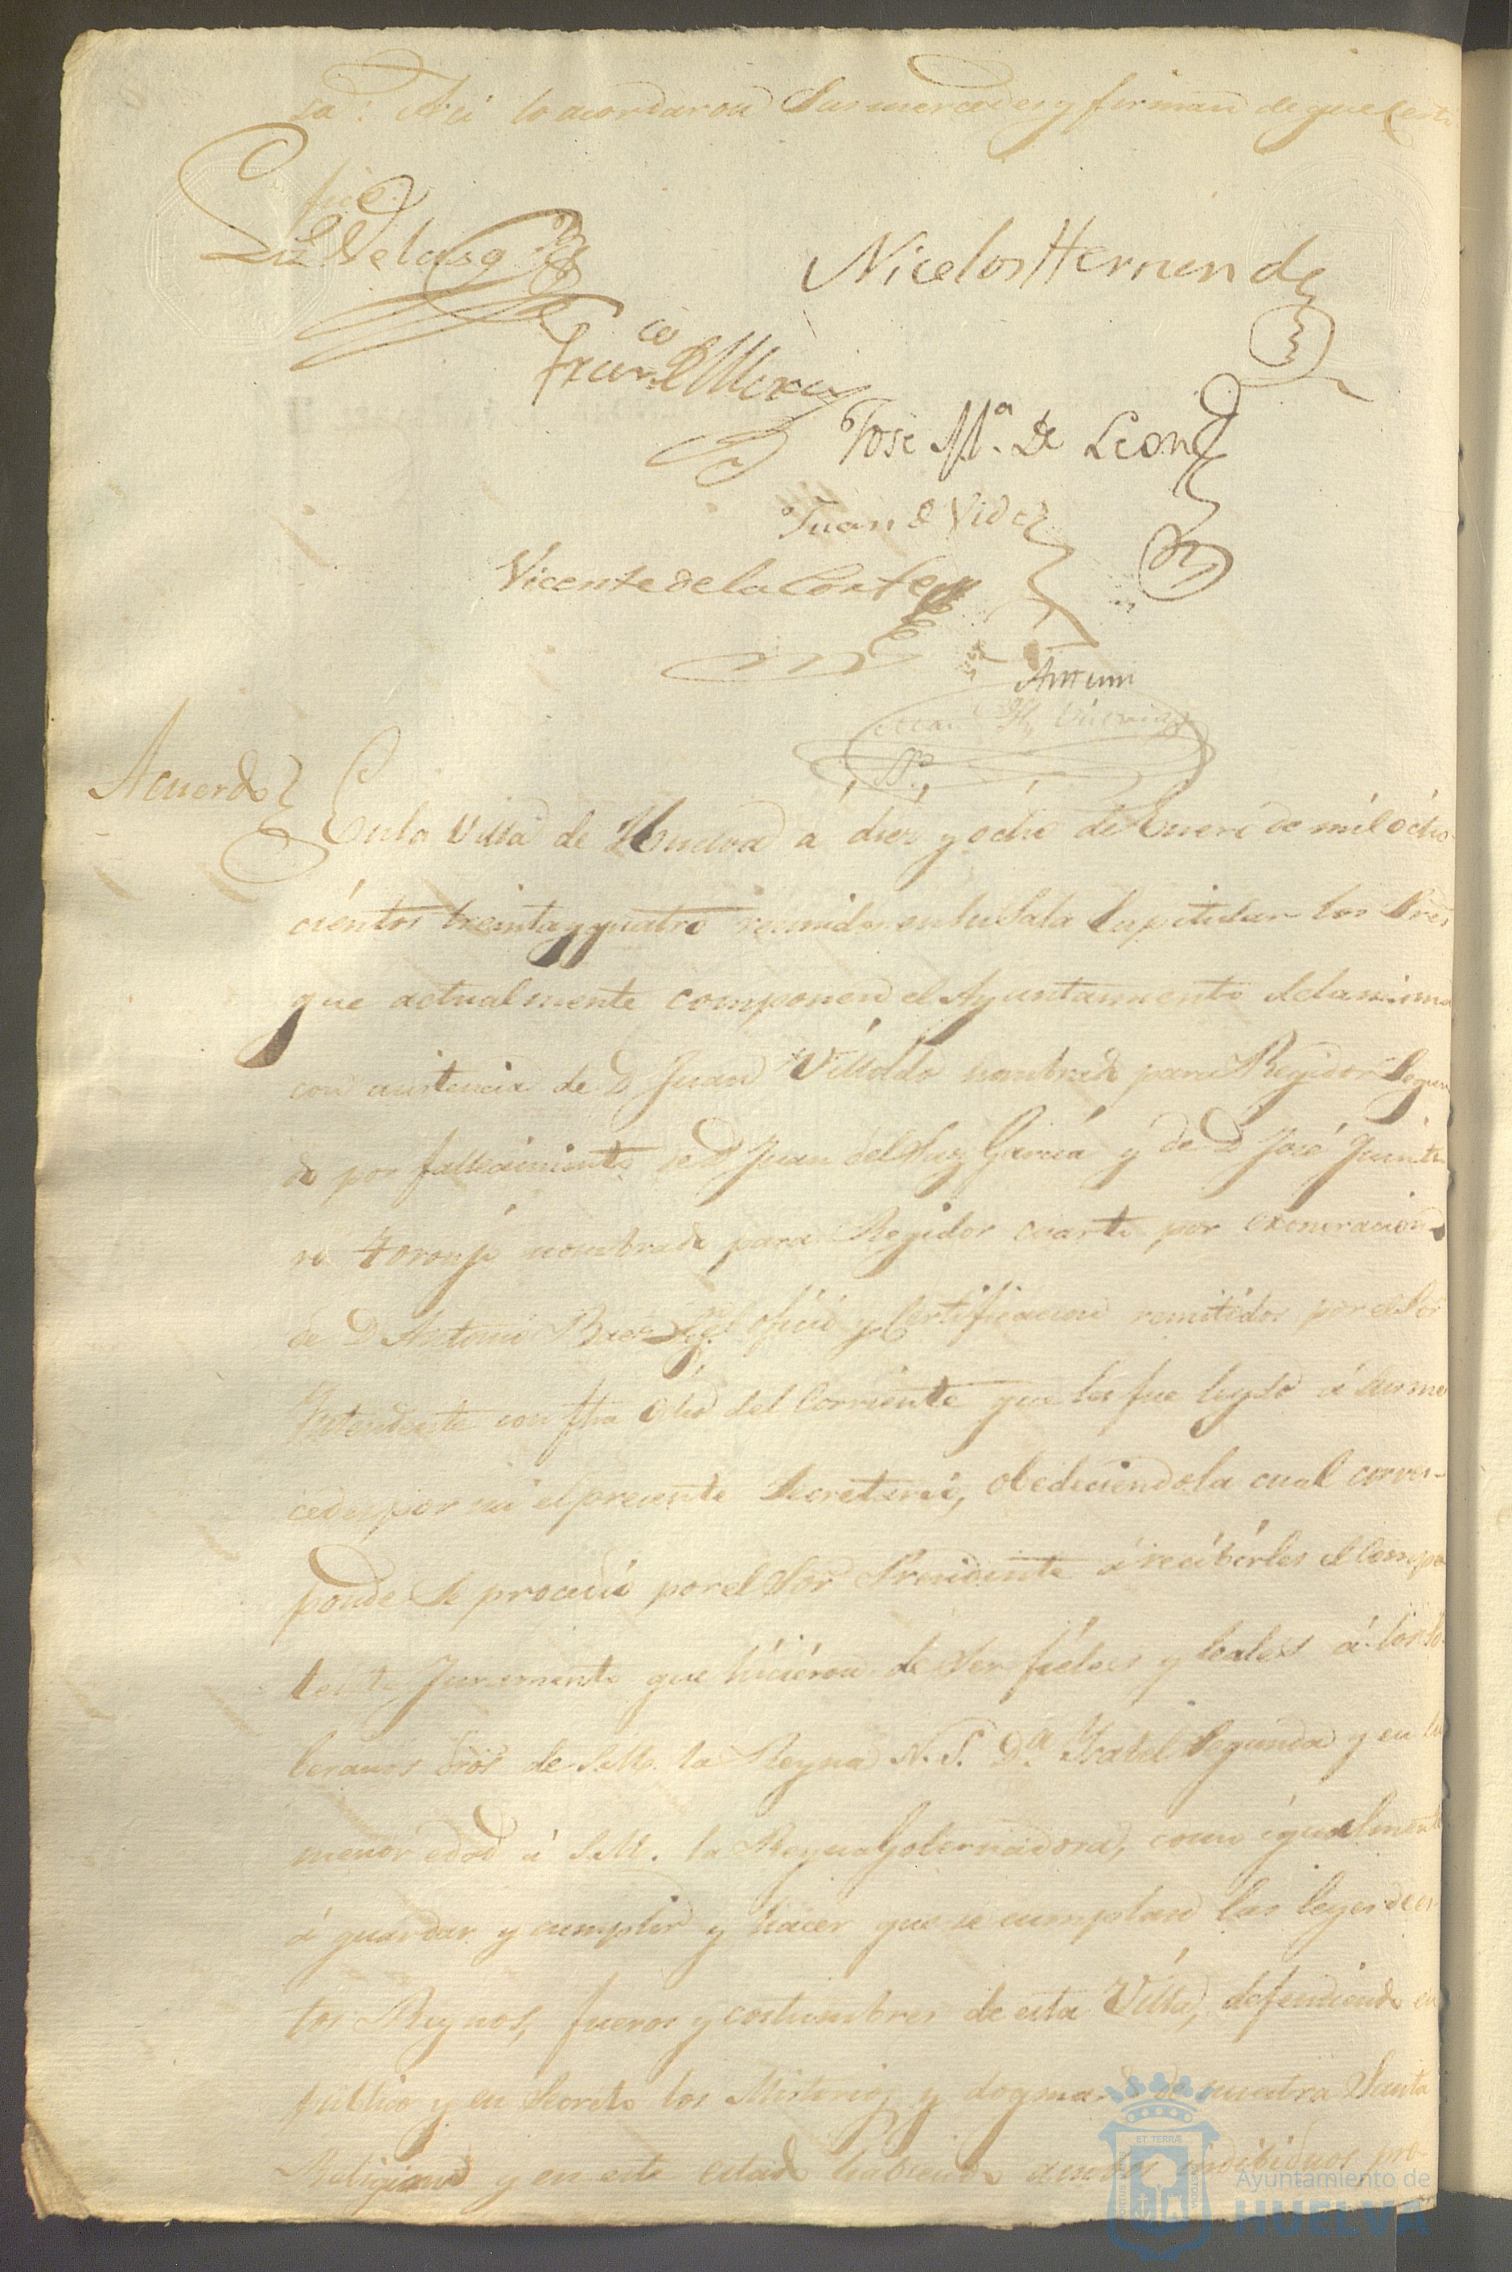 sa: Asi lo acordaron Sus mercedes y firman de que Certi
fico
Luis Velasq
Nicolas Hernand
Fran.co
Jose M.a De Leon
Juan de Vid
Vicente de la Corte
Ante mi
Acuerdo
En la Villa de Huelva á diez y ócho de Enero de mil ócho
cientos treinta y quatro reunidos en su Sala Capitular los Sres
que actualmente componen el Ayuntamiento de la misma
con asistencia de D Juan Villoldo nombrado para Regidor Segun
do por fallecimiento de D Juan del García y de D José Quinte
ro Toronjo nombrado para Regidor cuarto por exoneracion
de D Antonio oficio y Certificacion remitidos por el Sor
Yntendente con fha ocho del Corriente que les fue leydo á sus mer
cedes por mi el presente Secretario, obedeciendola cual corres-
ponde Se procedió por el Sor Presidente á recibirles el Compe
tente Juramento que hicieron de Ser fieles y leales á los So
beranos dros de S.M. la Reyna N.S. D.a Ysabel Segunda y en su
menor edad á S.M. la Reyna Gobernadora, como igualmente
á guardar y cumplir y hacer que se cumplan las leyes de es
tos Reynos, fueros y costumbres de esta Villa, defendiendo en
público y en Secreto los Misterios y dogmas de nuestra Santa
Religion y en este estado habiendo ambos indibiduos pro-
ET TERRÆ
Ayuntamiento de
HUELVA